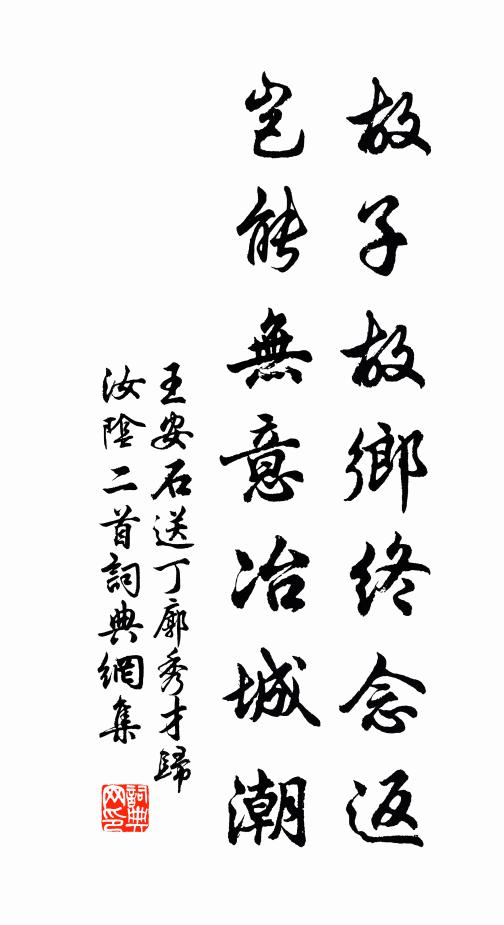 故子故鄉終念返
豈能無意冶城潮
王安石送丁廓秀才歸
汝陰二首詞典網集
詞典网印